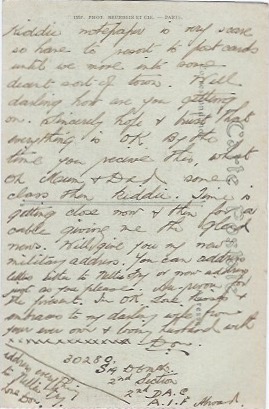 IMP. PHOT. NEURDEIN ET CIE. — PARIS.
Kiddie notepaper is very scarce
so have to resort to post cards
until we move into some
decent sort of town. Well
darling how are you getting
on. Sincerely hope & trust that
everything is OK. By the
time you receive this, what
Oh Mum & Dad some
class then kiddie. Time is
getting close now & then for a
cable giving me the glad
news. Will give you my new
military address. You can address
letters either to Nellie or now address
just as you please. Au revoir for
the present. Im OK
to my darling wife from
your ever own & loving husband with
Don.
address everything
to Nellie
love Don
30289.
2nd Section
2nd D.A.C
A.I.F Abroad.
Carte Postale